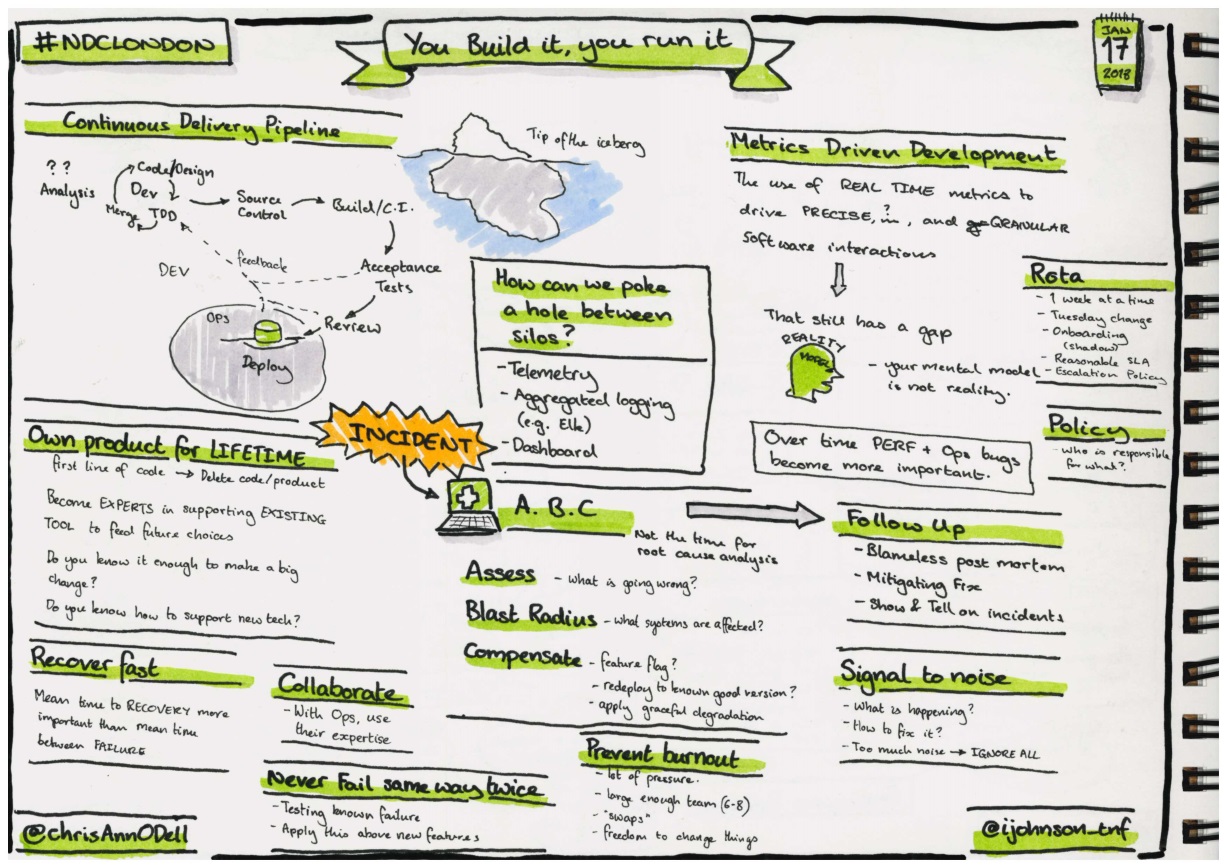 #NDCLONDON
You Build it, you run it
JAN
17
2018
Continuous Delivery Pipeline
? ?
Analysis
Code/Design
Dev
TDD
Merge
Source
Control
Build/C.I.
Acceptance
Tests
Review
feedback
DEV
Ops
Deploy
Tip of the iceberg
How can we poke
a hole between
silos?
- Telemetry
- Aggregated logging
(e.g. Elk)
- Dashboard
Metrics Driven Development
The use of REAL TIME metrics to
drive PRECISE, ?, and GRANULAR
software interactions
That still has a gap
REALITY
MODEL
- your mental model
is not reality.
Over time PERF + Ops bugs
become more important.
Rota
- 1 week at a time
- Tuesday change
- Onboarding
(shadow)
- Reasonable SLA
- Escalation Policy
Policy
- who is responsible
for what?
Own product for LIFETIME
first line of code → Delete code/product
Become EXPERTS in supporting EXISTING
TOOL to feed future choices
Do you know it enough to make a big
change?
Do you know how to support new tech?
INCIDENT
A. B. C
Not the time for
root cause analysis
Assess - what is going wrong?
Blast Radius - what systems are affected?
Compensate - feature flag?
- redeploy to known good version?
- apply graceful degradation
Follow Up
- Blameless post mortem
- Mitigating Fix
- Show & Tell on incidents
Recover fast
Mean time to RECOVERY more
important than mean time
between FAILURE
Collaborate
- With Ops, use
their expertise
Never Fail same way twice
- Testing known failure
- Apply this above new features
Prevent burnout
- lot of pressure.
- large enough team (6-8)
- "swaps"
- freedom to change things
Signal to noise
- What is happening?
- How to fix it?
- Too much noise → IGNORE ALL
@chrisAnnODell
@ijohnson_tnf